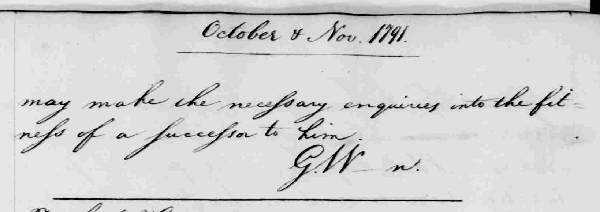 October & Nov. 1791.
may make the necessary enquiries into the fit-
ness of a successor to him.
G. W—n.